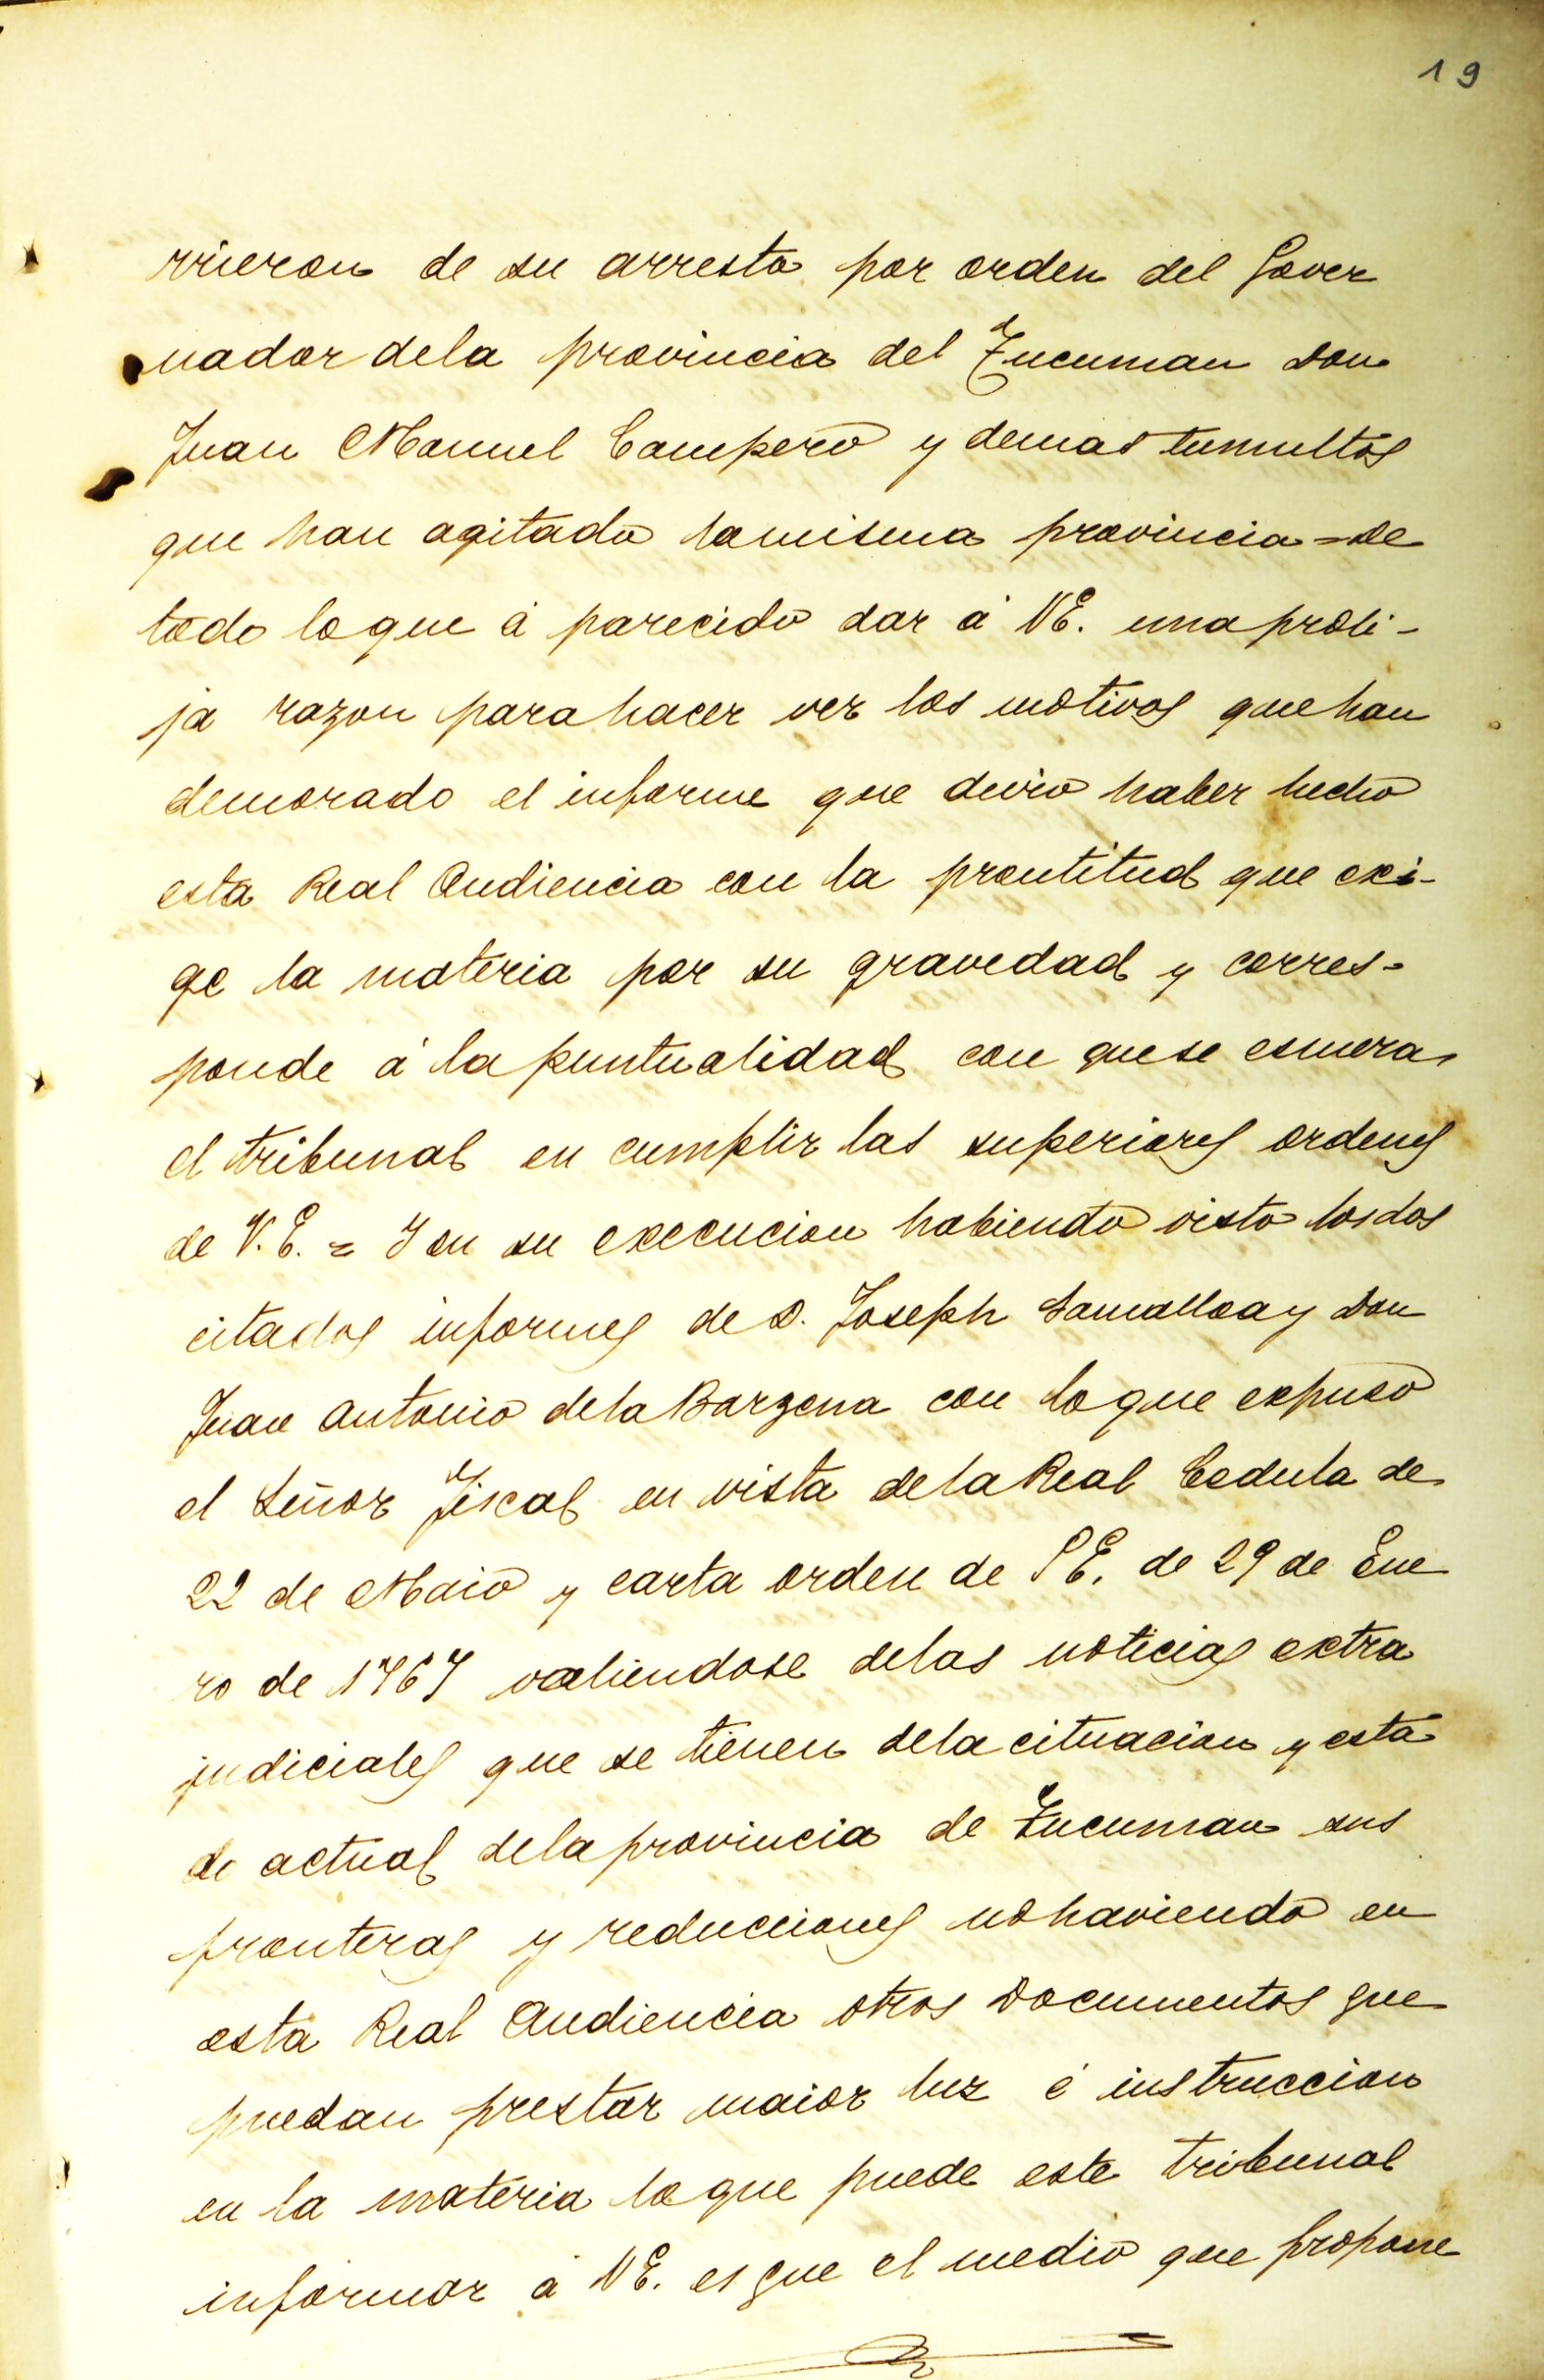 19
vieron de su arresto por orden del Gover
nador dela provincia del Tucuman Don
Juan Manuel Campero y demas tumultos
que han agitado lamisma provincia = de
todo loque á parecido dar á VE. una proli-
ja razon para hacer ver los motivos que han
demorado el informe que devio haber hecho
esta Real Audiencia con la prontitud que exi-
ge la materia por su gravedad y corres-
ponde á la puntualidad con que se esmera
el tribunal en cumplir las superiores ordenes
de V.E. = Y en su execucion habiendo visto los dos
citados informes de D. Joseph Samalloa y Don
Juan Antonio dela Barzena con loque expuso
el Señor Fiscal en vista dela Real Cedula de
22 de Maio y carta orden de SE. de 29 de Ene
ro de 1767 valiendose delas noticias extra
judiciales que se tienen dela cituacion y esta
do actual dela provincia de Tucuman sus
fronteras y reducciones no haviendo en
esta Real Audiencia otros Documentos que
puedan prestar maior luz é instruccion
en la materia loque puede este tribunal
informar á VE. es que el medio que propone